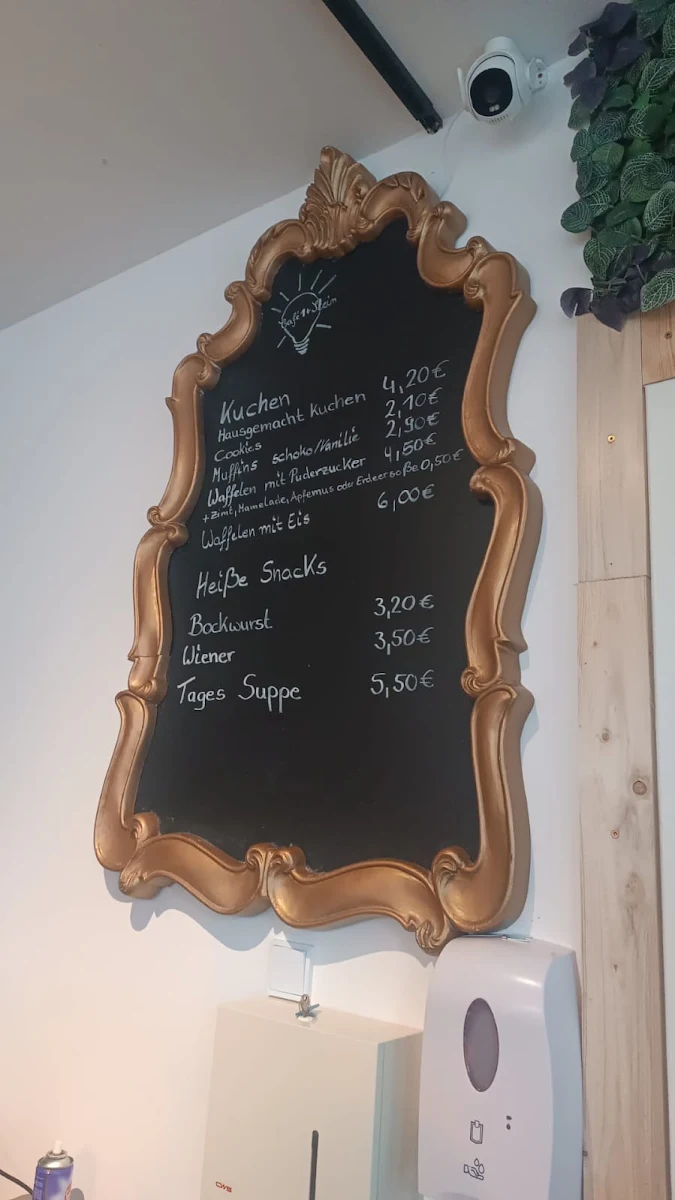 Kuchen
Hausgemacht Kuchen 4,20€
Cookies 2,10€
Muffins schoko/Vanilie 2,90€
Waffelen mit Puderzucker 4,50€
+ Zimt, Mamelade, Apfemus oder Erdeersoße 0,50€
Waffelen mit Eis 6,00€
Heiße Snacks
Bockwurst 3,20€
Wiener 3,50€
Tages Suppe 5,50€
CWS